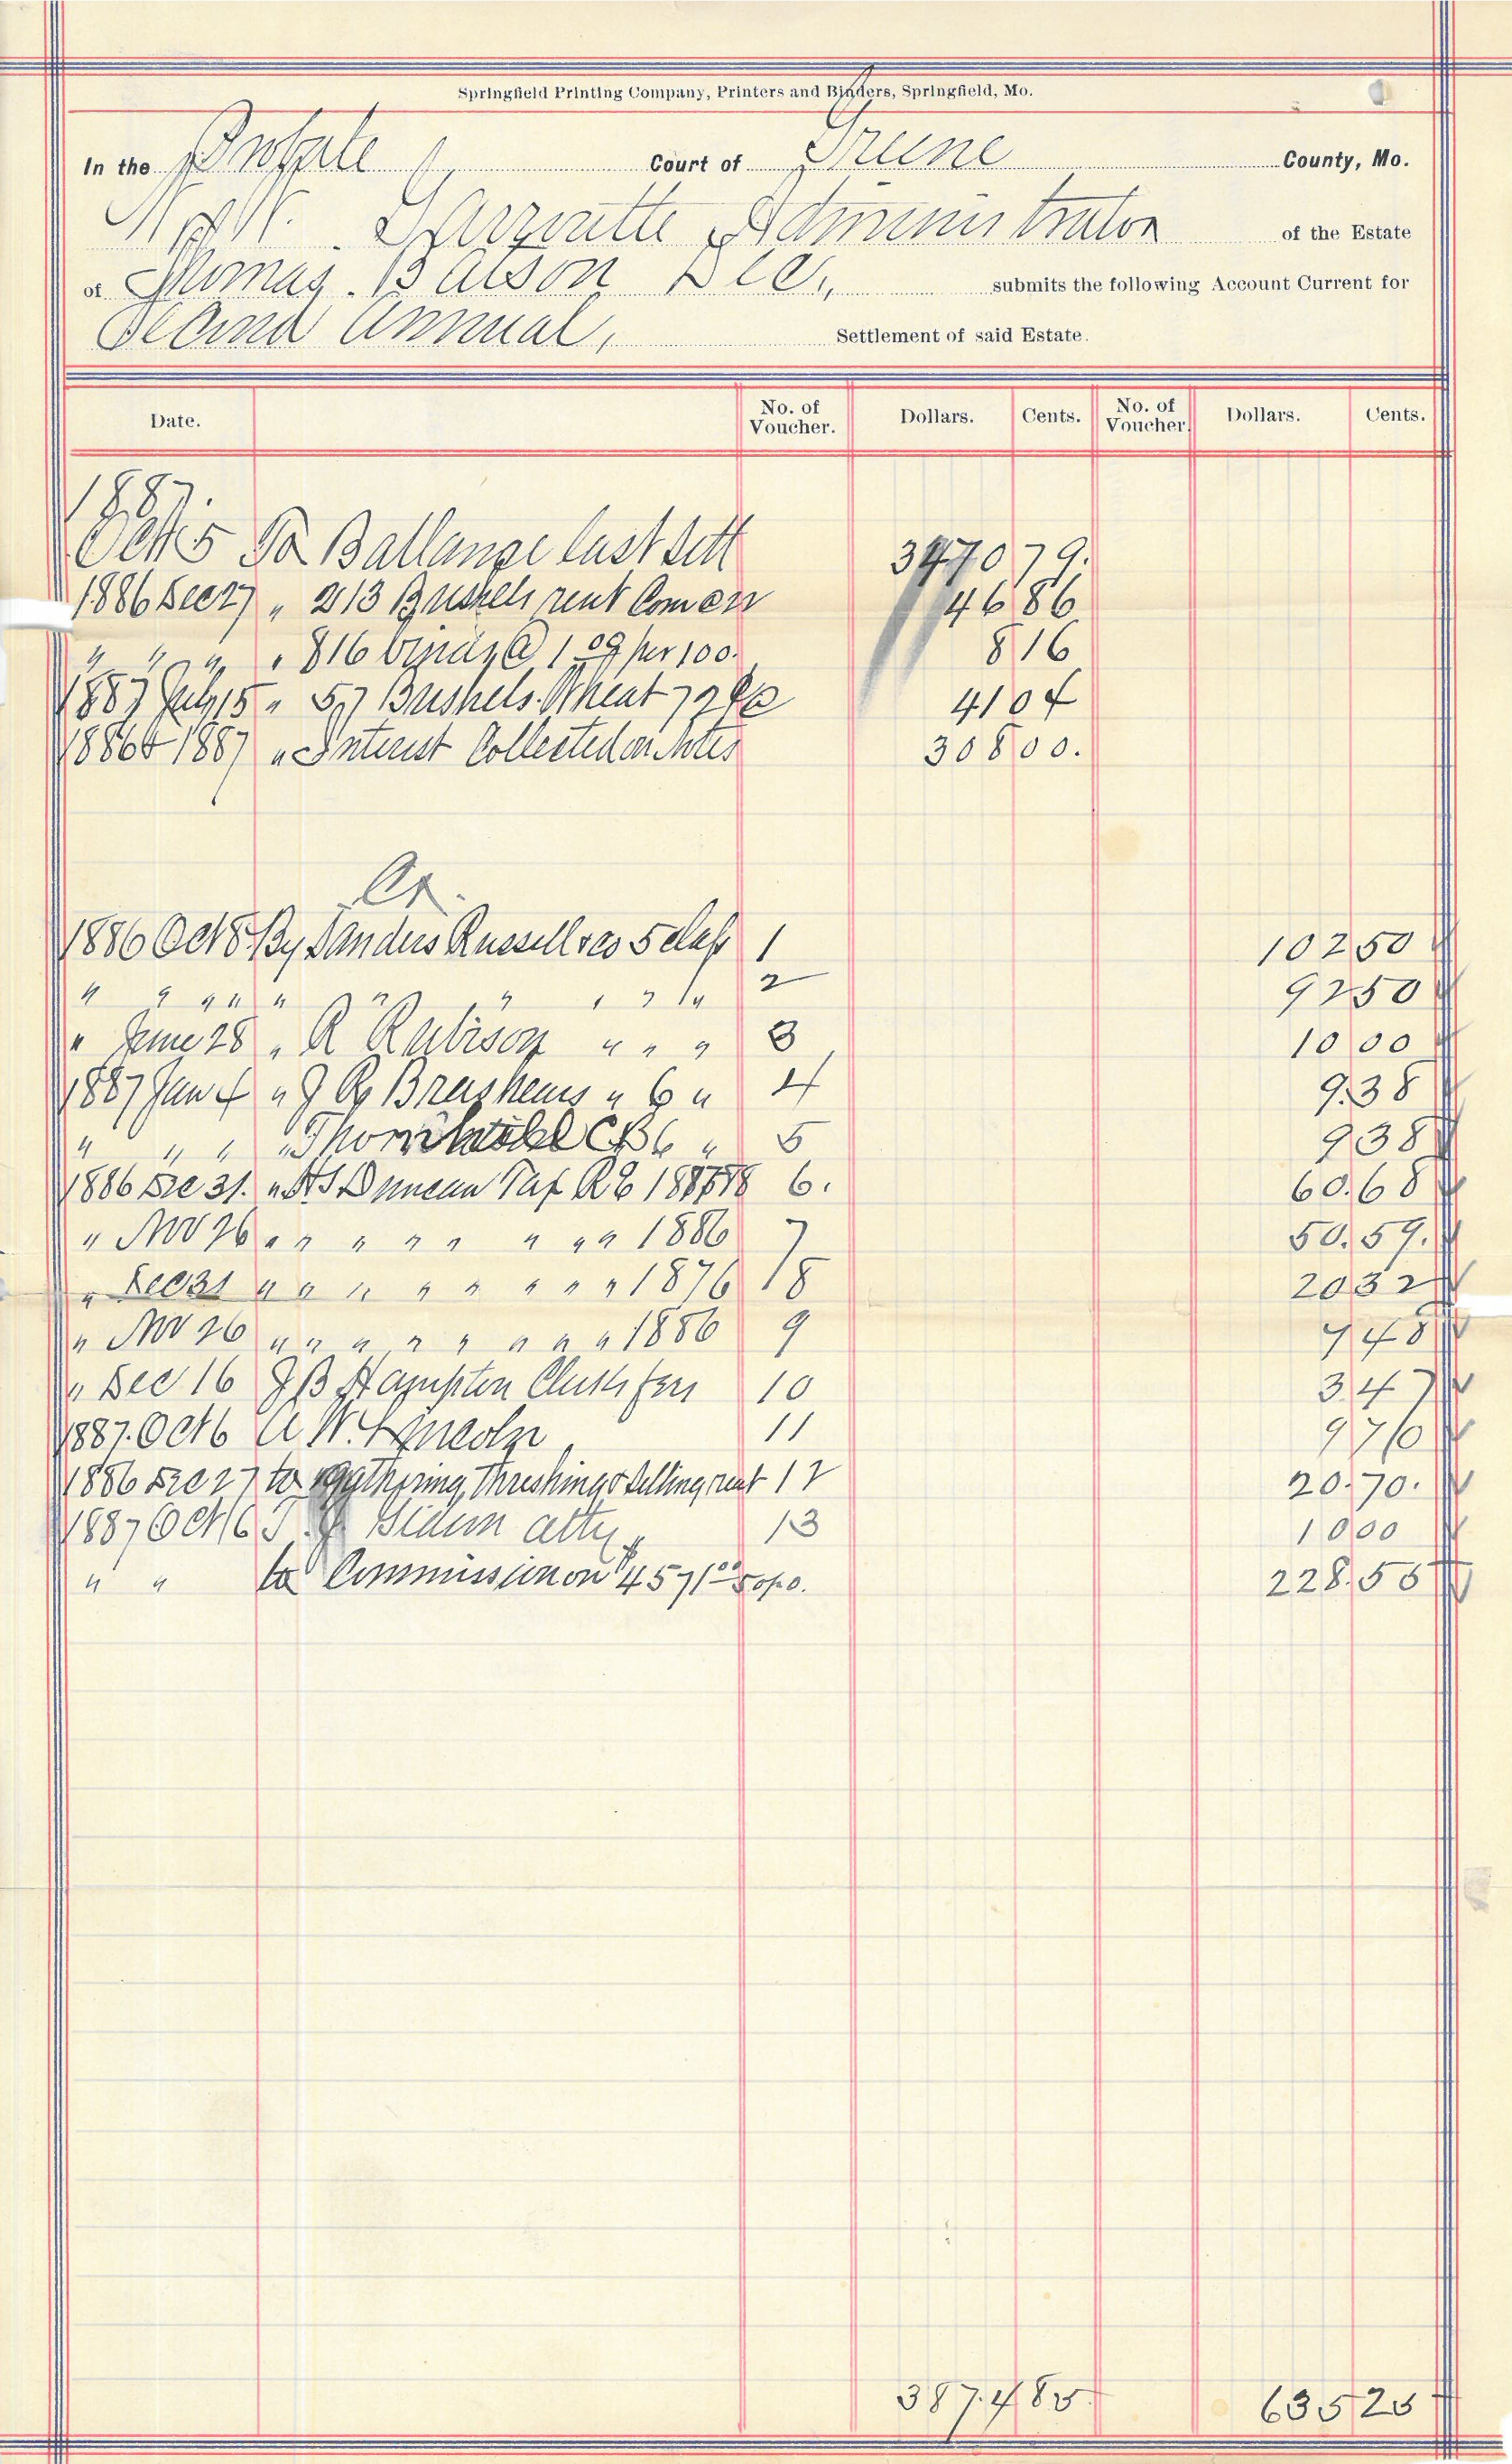 Springfield Printing Company, Printers and Binders, Springfield, Mo.
In the Probate Court of Greene County, Mo.
W. Garroutte Administrator of the Estate
of Thomas Batson Dec, submits the following Account Current for
Second Annual, Settlement of said Estate.
Date. No. of Voucher. Dollars. Cents. No. of Voucher. Dollars. Cents.
1887.
Oct 5 To Ballange last Sett 3470 79.
1886 Dec 27 " 213 Bushels rent Corn 46 86
" " " " 816 @ 1 00 per 100. 8 16
1887 July 15 " 57 Bushels Wheat 72 41 04
1886 & 1887 " Interest Collected on Notes 308 00.
Cr.
1886 Oct 8 By Sanders Russell & co 5 class 1 102 50
" " " " " " " " " " 2 92 50
" June 28 " R Robison " " " 3 10 00
1887 Jan 4 " J R Brashears " 6 " 4 9.38
" " " " Thornhill CB 6 " 5 9 38
1886 Dec 31. " Duncan Tax RE 6. 60.68
" Nov 26 " " " " " " " " 1886 7 50.59.
" Dec 31 " " " " " " " " " 1876 8 20 32
" Nov 26 " " " " " " " " " 1886 9 7 48
" Dec 16 J B Hampton Clerks fees 10 3.47
1887. Oct 6 A W. Lincoln 11 9 70
1886 Dec 27 to gathering, threshing & selling rent 12 20.70.
1887 Oct 6 T. J. Gideon atty 13 10 00
" " to Commission on $4571 00 5 op.o. 228.55
387.4 85 635 25